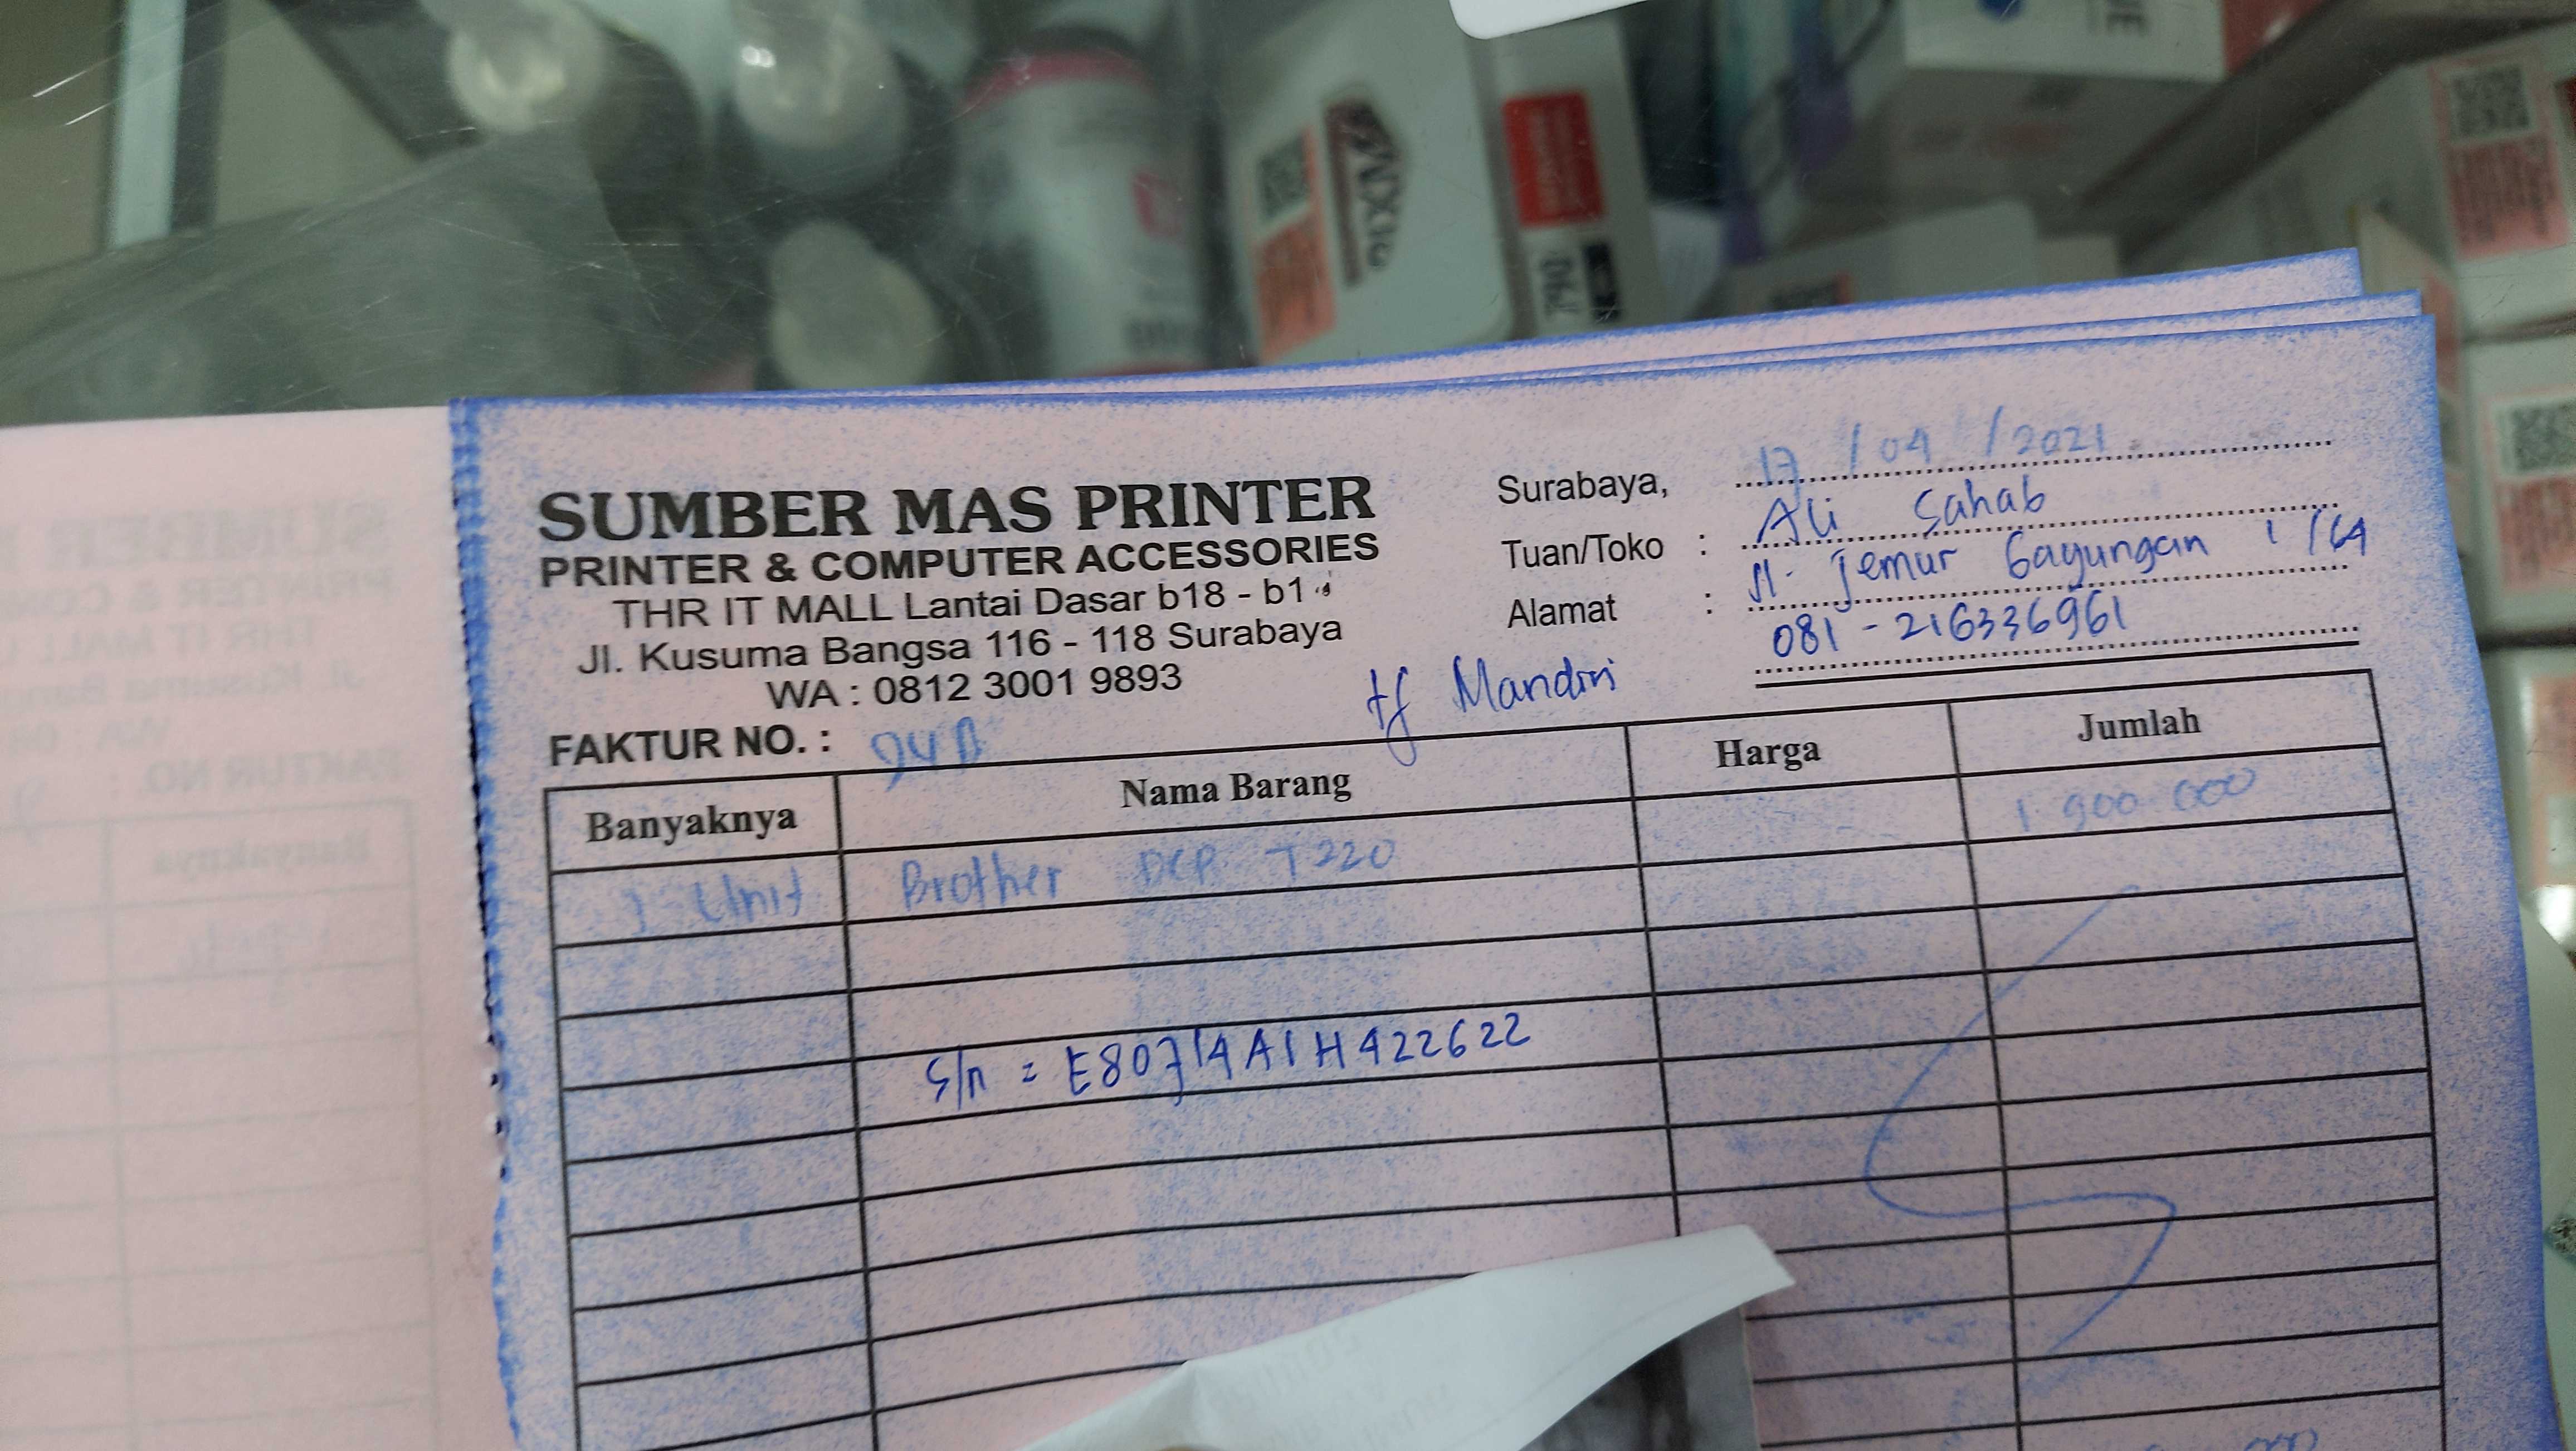 SUMBER MAS PRINTER
PRINTER & COMPUTER ACCESSORIES
THR IT MALL Lantai Dasar b18 - b1
Jl. Kusuma Bangsa 116 - 118 Surabaya
WA : 0812 3001 9893
Surabaya, 17 / 04 / 2021
Tuan/Toko : Ali Sahab
Alamat : Jl. Jemur Gayungan 1 / 64
081 - 216336961
tf Mandiri
FAKTUR NO. :
Banyaknya Nama Barang Harga Jumlah
1 Unit Brother DCP T220 1 900 000
S/n = E80714A1H422622
Axio